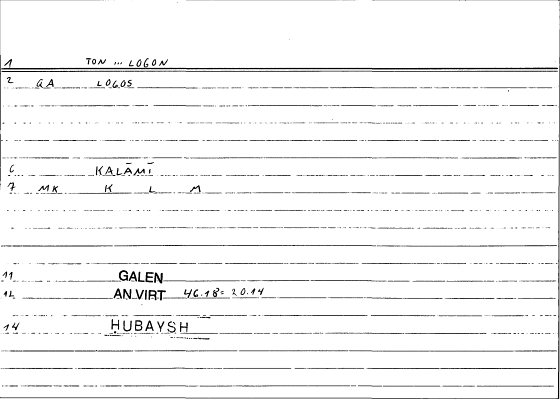 1 TON ... LOGON
2 GA LOGOS
6 KALĀMĪ
7 MK K L M
11 GALEN
12 AN.VIRT 46.18 = 20.14
14 ḤUBAYSH